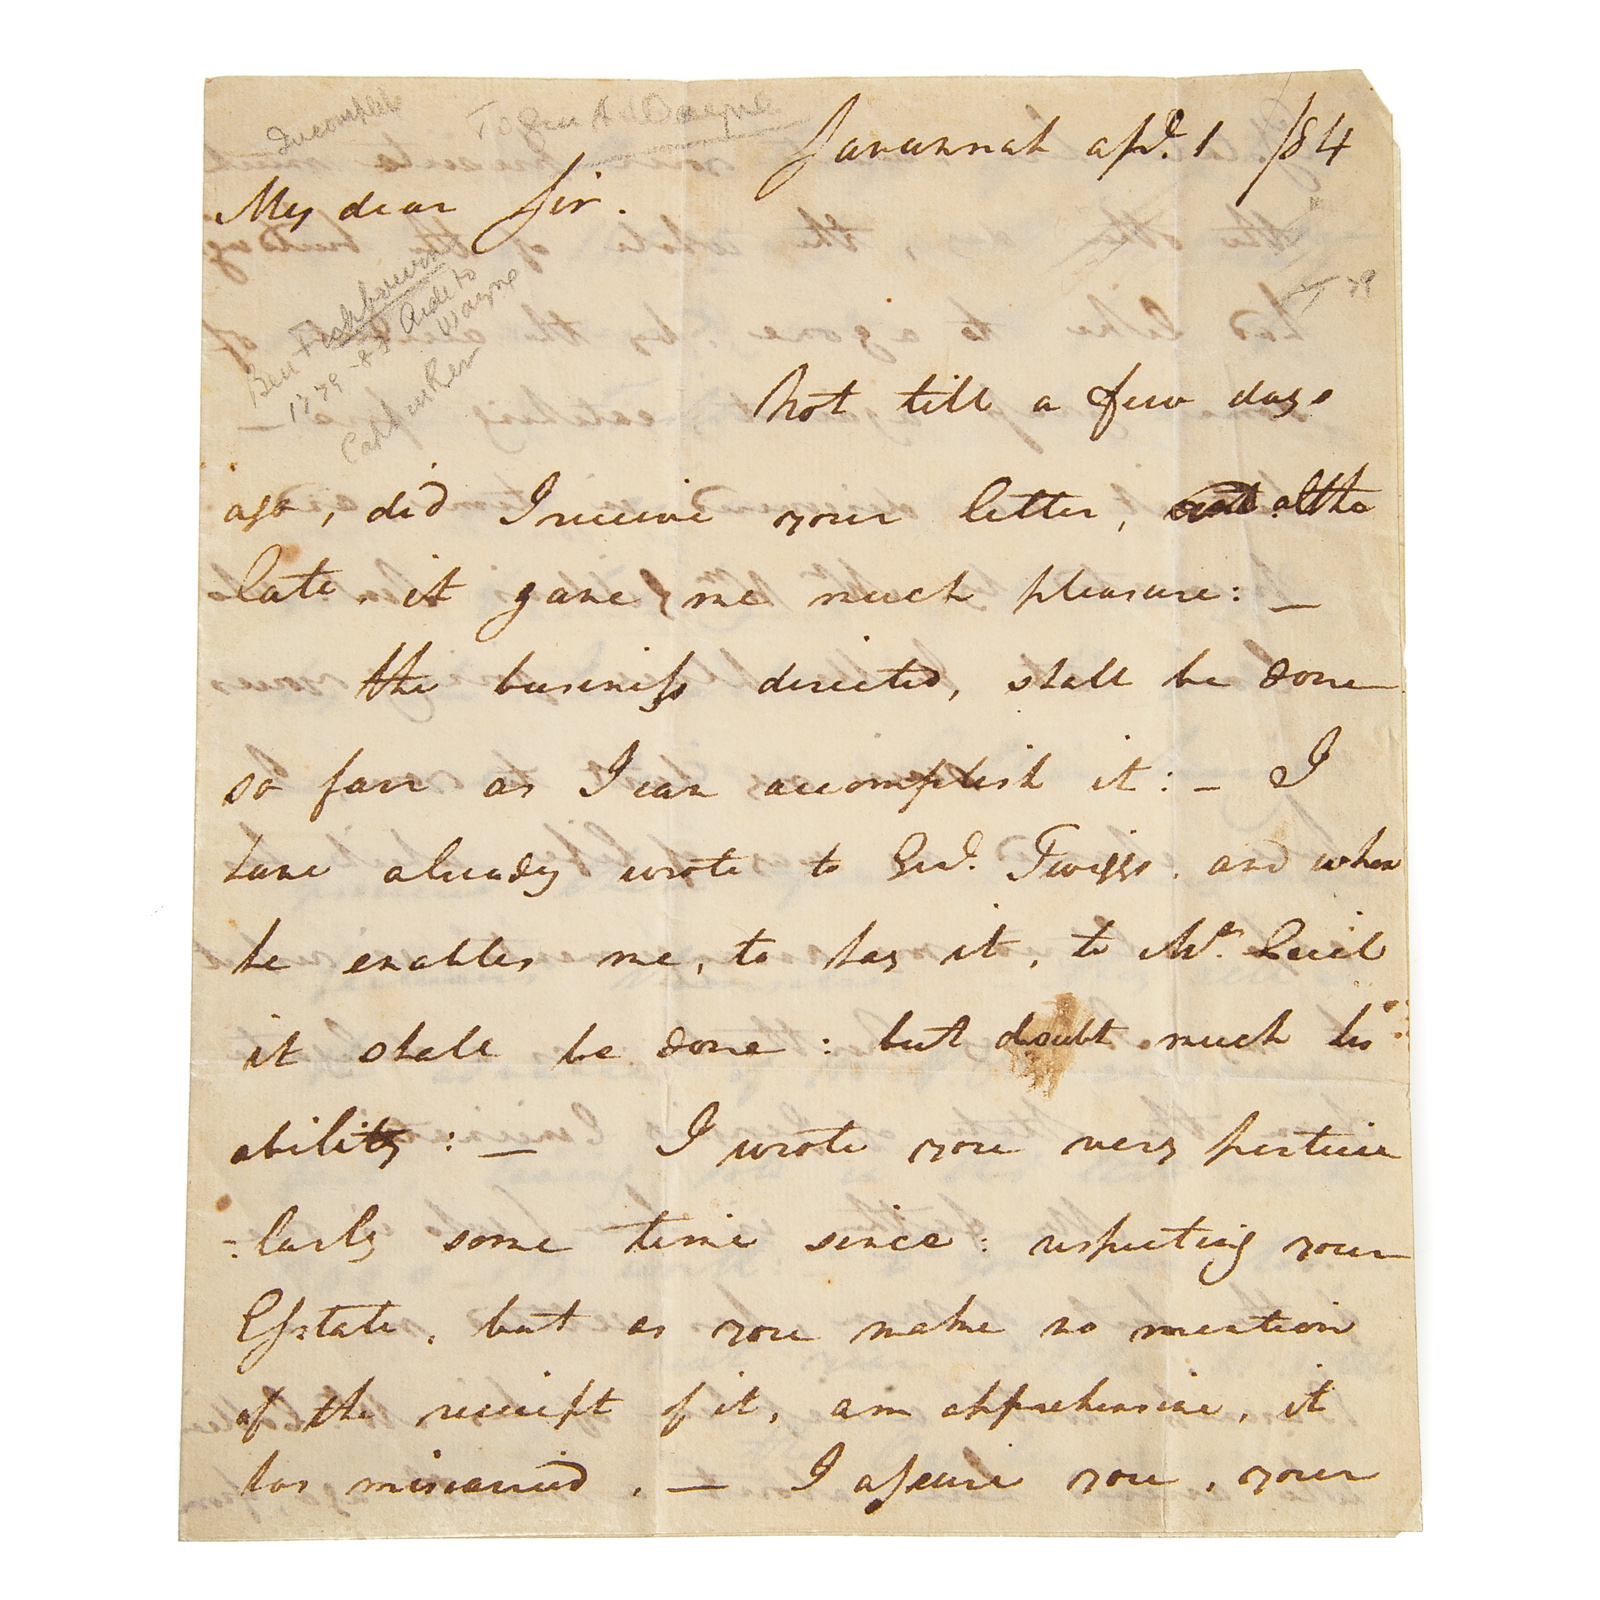 Incomplete
To Gen A Wayne
Savannah apl. 1 /84
My dear Sir.
Ben Fishbourn
1779-83 Aide to
Wayne
Capt in Rev
Not till a few days
ago, did I receive your letter, altho
late, it gave me much pleasure: —
the business directed, shall be done
so farr as I can accomplish it: — I
have already wrote to Genl. Twiggs, and when
he enables me, to pay it, to Mr.
it shall be done: but doubt much his
ability: — I wrote you very particu
-larly some time since: respecting your
Esstate, but as you make no mention
of the receipt of it, am apprehensive, it
has miscarried. — I assure you, your